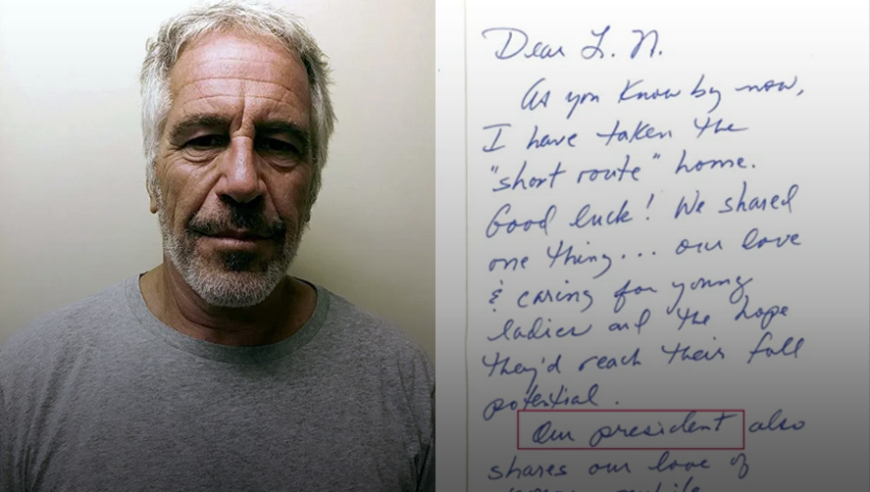 Dear L. N.
As you know by now,
I have taken the
"short route" home.
Good luck! We shared
one thing... our love
& caring for young
ladies and the hope
they'd reach their full
potential.
Our president also
shares our love of